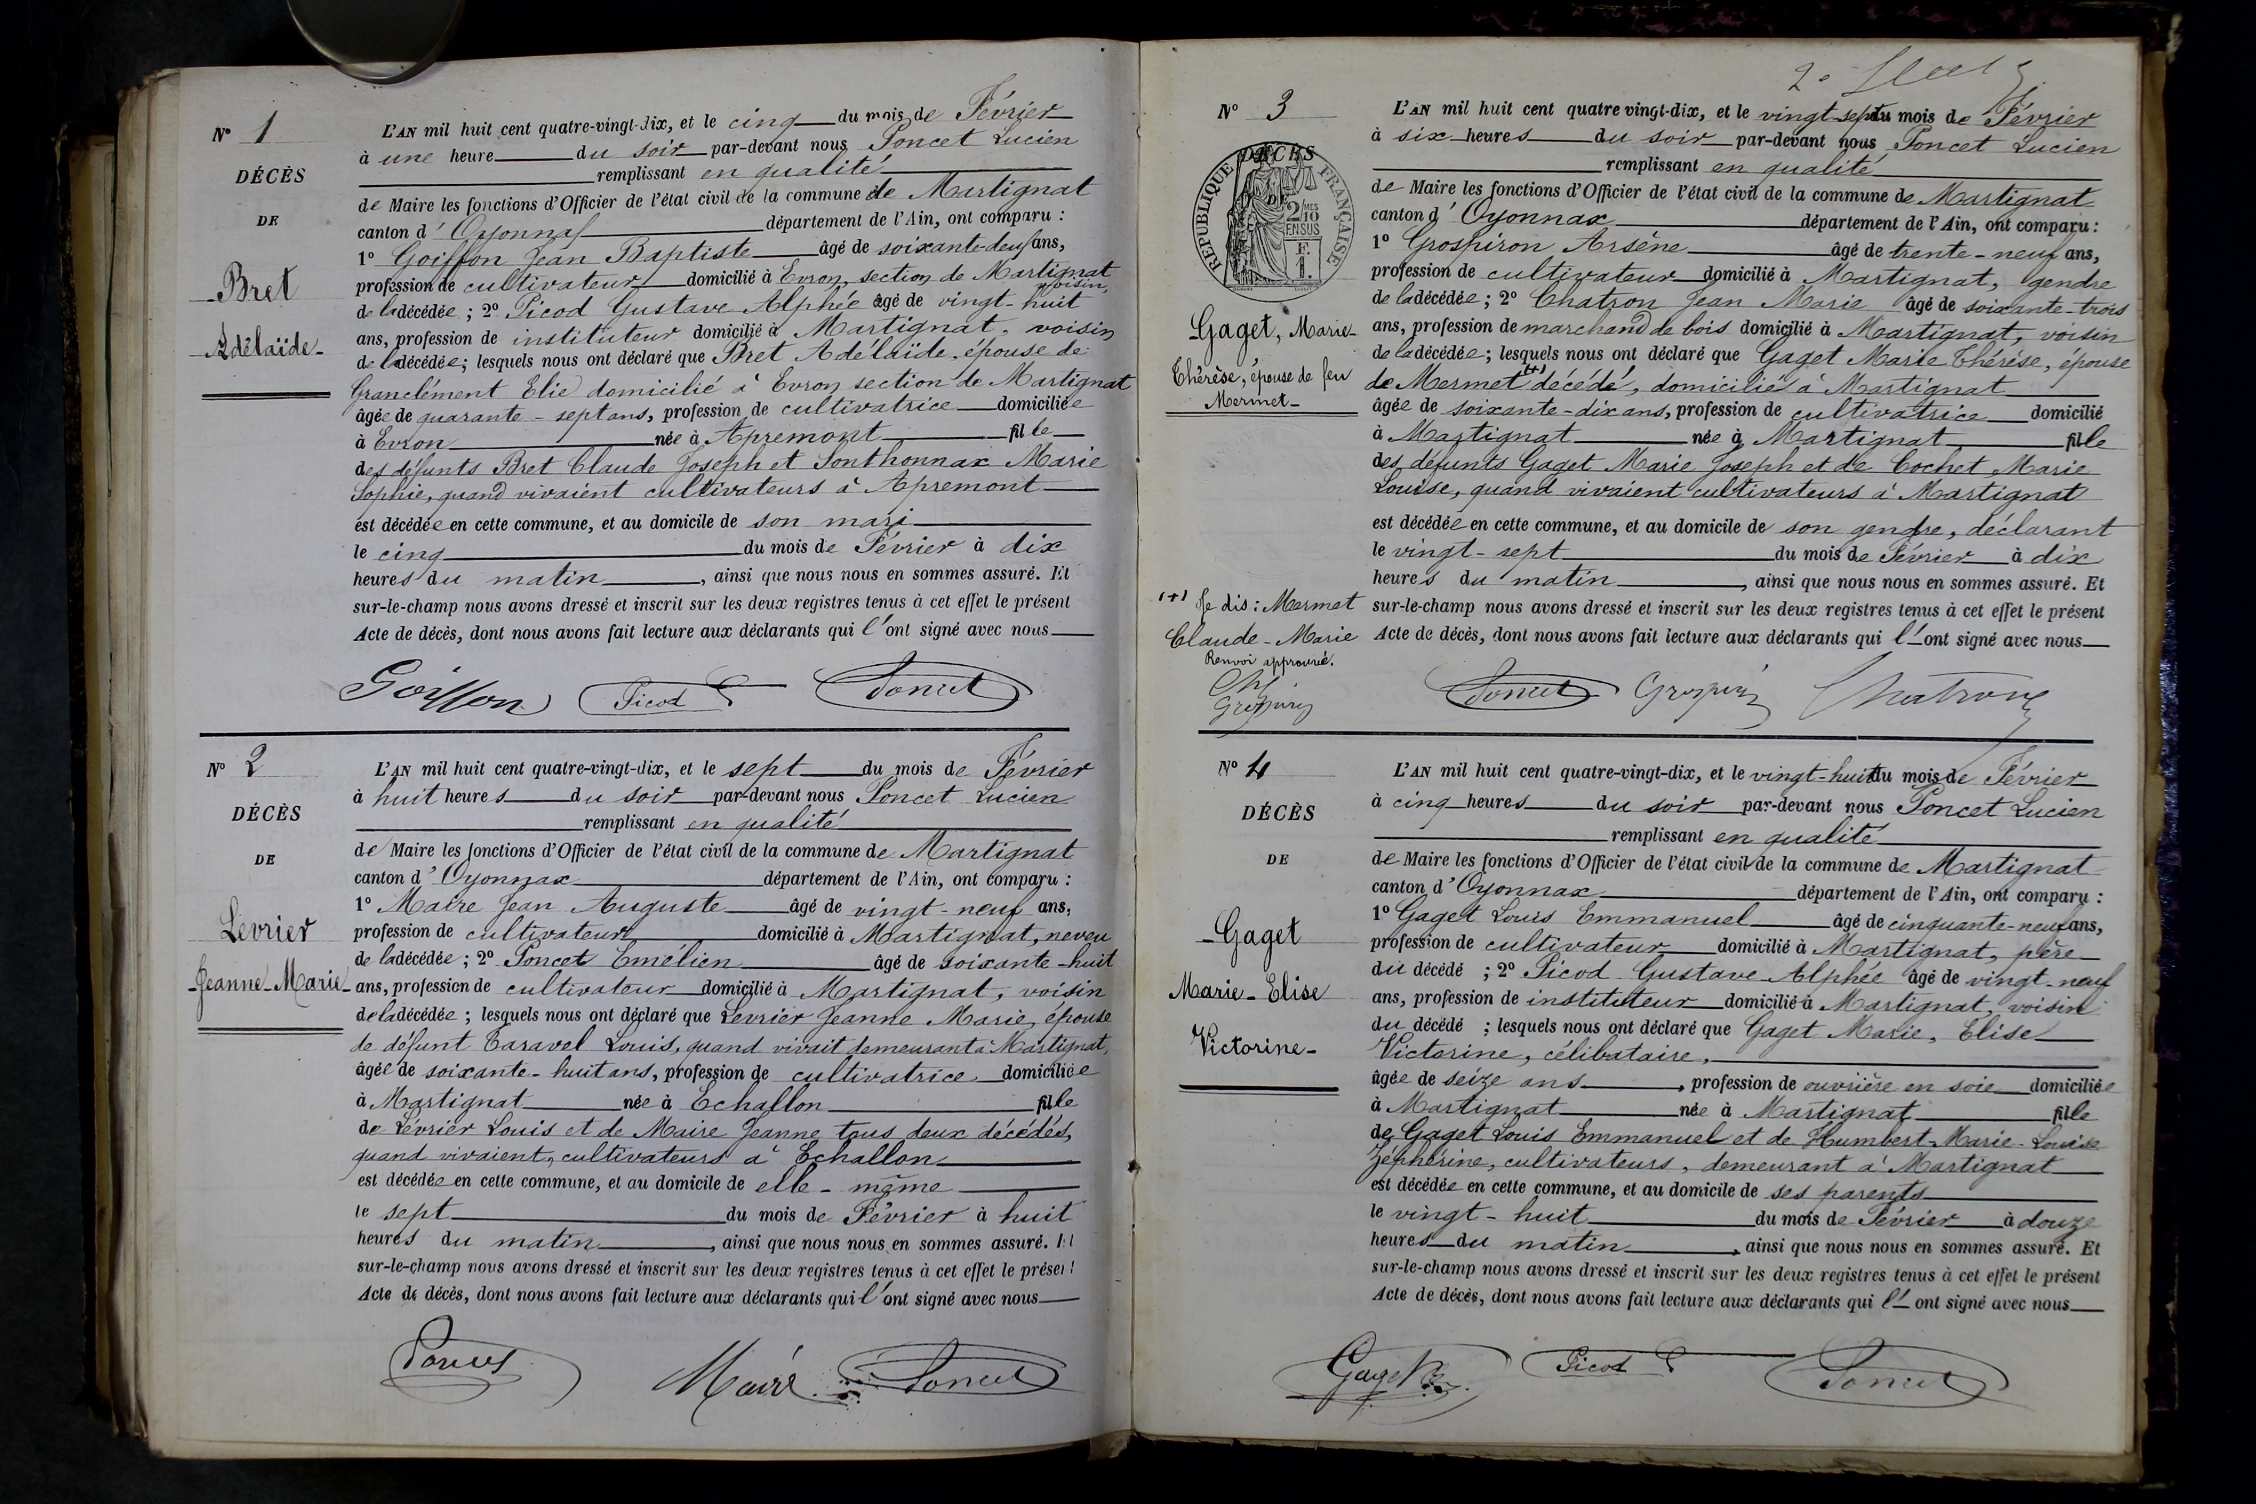 N° 1
DÉCÈS
DE
Bret
Adélaïde
L'AN mil huit cent quatre-vingt-dix, et le cinq du mois de Février
à une heure du soir par-devant nous Poncet Lucien
remplissant en qualité
de Maire les fonctions d'Officier de l'état civil de la commune de Martignat
canton d'Oyonnax département de l'Ain, ont comparu :
1° Goiffon Jean Baptiste âgé de soixante-deux ans,
profession de cultivateur domicilié à Evron, section de Martignat
voisin,
de la décédée ; 2° Picod Gustave Alphée âgé de vingt-huit
ans, profession de instituteur domicilié à Martignat, voisin
de la décédée; lesquels nous ont déclaré que Bret Adélaïde, épouse de
Granclément Elie domicilié à Evron section de Martignat
âgée de quarante-sept ans, profession de cultivatrice domiciliée
à Evron née à Apremont fille
des défunts Bret Claude Joseph et Sonthonnax Marie
Sophie, quand vivaient cultivateurs à Apremont
est décédée en cette commune, et au domicile de son mari
le cinq du mois de Février à dix
heures du matin, ainsi que nous nous en sommes assuré. Et
sur-le-champ nous avons dressé et inscrit sur les deux registres tenus à cet effet le présent
Acte de décès, dont nous avons fait lecture aux déclarants qui l'ont signé avec nous
Goiffon Picod Poncet
N° 2
DÉCÈS
DE
Levrier
Jeanne-Marie
L'AN mil huit cent quatre-vingt-dix, et le sept du mois de Février
à huit heures du soir par-devant nous Poncet Lucien
remplissant en qualité
de Maire les fonctions d'Officier de l'état civil de la commune de Martignat
canton d'Oyonnax département de l'Ain, ont comparu :
1° Maire Jean Auguste âgé de vingt-neuf ans,
profession de cultivateur domicilié à Martignat, neveu
de la décédée ; 2° Poncet Emélien âgé de soixante-huit
ans, profession de cultivateur domicilié à Martignat, voisin
de la décédée ; lesquels nous ont déclaré que Levrier Jeanne Marie, épouse
de défunt Taravel Louis, quand vivait demeurant à Martignat,
âgée de soixante-huit ans, profession de cultivatrice domiciliée
à Martignat née à Echallon fille
de Levrier Louis et de Maire Jeanne tous deux décédés,
quand vivaient, cultivateurs à Echallon
est décédée en cette commune, et au domicile de elle-même
le sept du mois de Février à huit
heures du matin, ainsi que nous nous en sommes assuré. Et
sur-le-champ nous avons dressé et inscrit sur les deux registres tenus à cet effet le présent
Acte de décès, dont nous avons fait lecture aux déclarants qui l'ont signé avec nous
Poncet Maire Poncet
N° 3
DÉCÈS
DE
RÉPUBLIQUE FRANÇAISE
2/10 MES
EN SUS
F.
1.
Gaget, Marie
Thérèse, épouse de feu
Mermet
L'AN mil huit cent quatre vingt-dix, et le vingt-sept du mois de Février
à six heures du soir par-devant nous Poncet Lucien
remplissant en qualité
de Maire les fonctions d'Officier de l'état civil de la commune de Martignat
canton d'Oyonnax département de l'Ain, ont comparu :
1° Grospiron Arsène âgé de trente-neuf ans,
profession de cultivateur domicilié à Martignat, gendre
de la décédée ; 2° Chatron Jean Marie âgé de soixante-trois
ans, profession de marchand de bois domicilié à Martignat, voisin
de la décédée ; lesquels nous ont déclaré que Gaget Marie Thérèse, épouse
de Mermet (+) décédé, domicilié à Martignat
âgée de soixante-dix ans, profession de cultivatrice domicilié
à Martignat née à Martignat fille
des défunts Gaget Marie Joseph et de Cochet Marie
Louise, quand vivaient cultivateurs à Martignat
est décédée en cette commune, et au domicile de son gendre, déclarant
le vingt-sept du mois de Février à dix
heures du matin, ainsi que nous nous en sommes assuré. Et
sur-le-champ nous avons dressé et inscrit sur les deux registres tenus à cet effet le présent
Acte de décès, dont nous avons fait lecture aux déclarants qui l'ont signé avec nous
(+) Je dis : Mermet
Claude-Marie
Renvoi approuvé.
Ch
Grospiron
Poncet Grospiron Chatron
N° 4
DÉCÈS
DE
Gaget
Marie-Elise
Victorine
L'AN mil huit cent quatre-vingt-dix, et le vingt-huit du mois de Février
à cinq heures du soir par-devant nous Poncet Lucien
remplissant en qualité
de Maire les fonctions d'Officier de l'état civil de la commune de Martignat
canton d'Oyonnax département de l'Ain, ont comparu :
1° Gaget Louis Emmanuel âgé de cinquante-neuf ans,
profession de cultivateur domicilié à Martignat, père
du décédé ; 2° Picod Gustave Alphée âgé de vingt-neuf
ans, profession de instituteur domicilié à Martignat, voisin
du décédé ; lesquels nous ont déclaré que Gaget Marie, Elise
Victorine, célibataire,
âgée de seize ans, profession de ouvrière en soie domiciliée
à Martignat née à Martignat fille
de Gaget Louis Emmanuel et de Humbert Marie-Louise
Zéphérine, cultivateurs, demeurant à Martignat
est décédée en cette commune, et au domicile de ses parents
le vingt-huit du mois de Février à douze
heures du matin, ainsi que nous nous en sommes assuré. Et
sur-le-champ nous avons dressé et inscrit sur les deux registres tenus à cet effet le présent
Acte de décès, dont nous avons fait lecture aux déclarants qui l'ont signé avec nous
Gaget Picod Poncet